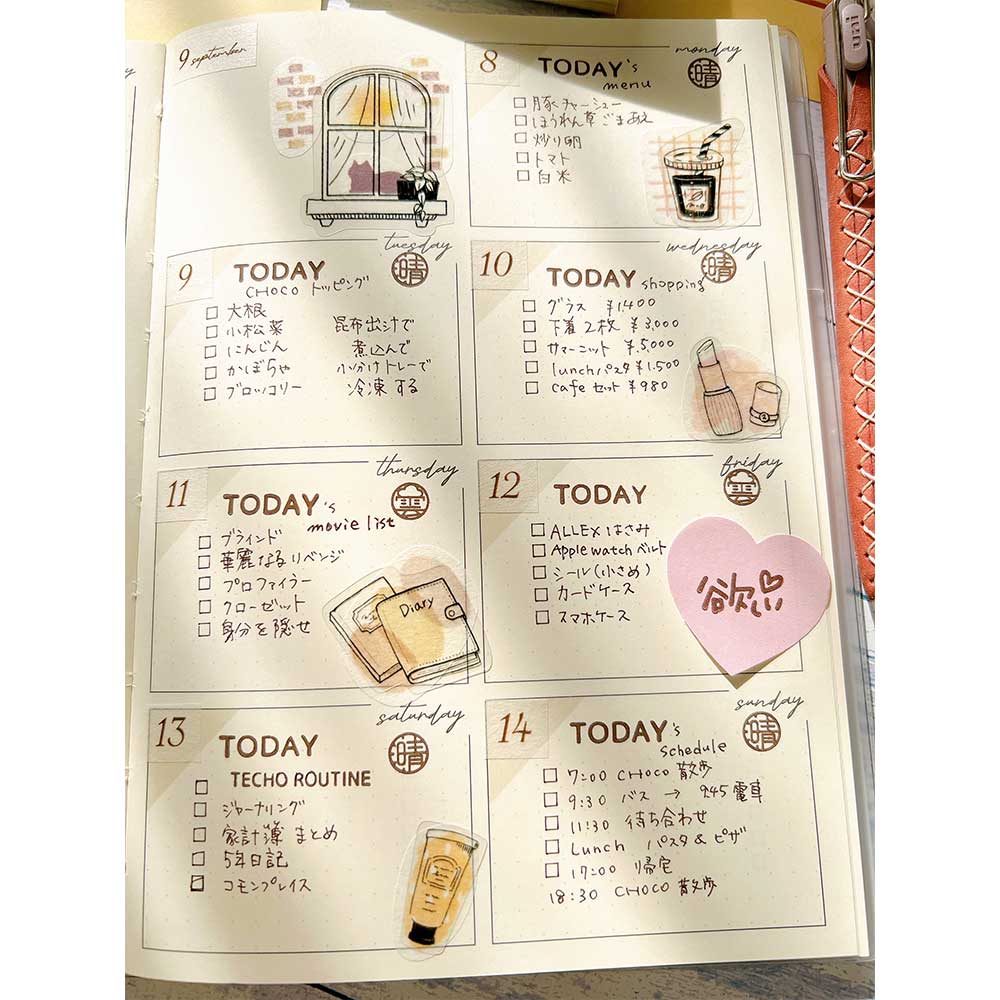 9 september
8
monday
晴
TODAY's
menu
豚チャーシュー
ほうれん草ごまあえ
炒り卵
トマト
白米
9
tuesday
晴
TODAY
CHOCO トッピング
大根
小松菜
にんじん
かぼちゃ
ブロッコリー
昆布出汁で
煮込んで
小分けトレーで
冷凍する
10
wednesday
晴
TODAY shopping
グラス ¥1400
下着2枚 ¥3,000
サマーニット ¥5,000
lunchパスタ ¥1,500
cafeセット ¥980
11
thursday
雲
TODAY's
movie list
ブラインド
華麗なるリベンジ
プロファイラー
クローゼット
身分を隠せ
Diary
12
friday
雲
TODAY
ALLEXはさみ
Apple watchベルト
シール(小さめ)
カードケース
スマホケース
欲しい
13
saturday
晴
TODAY
TECHO ROUTINE
ジャーナリング
家計簿まとめ
5年日記
コモンプレイス
14
sunday
晴
TODAY's
schedule
7:00 CHOCO 散歩
9:30 バス → 9:45 電車
11:30 待ち合わせ
Lunch パスタ & ピザ
17:00 帰宅
18:30 CHOCO 散歩